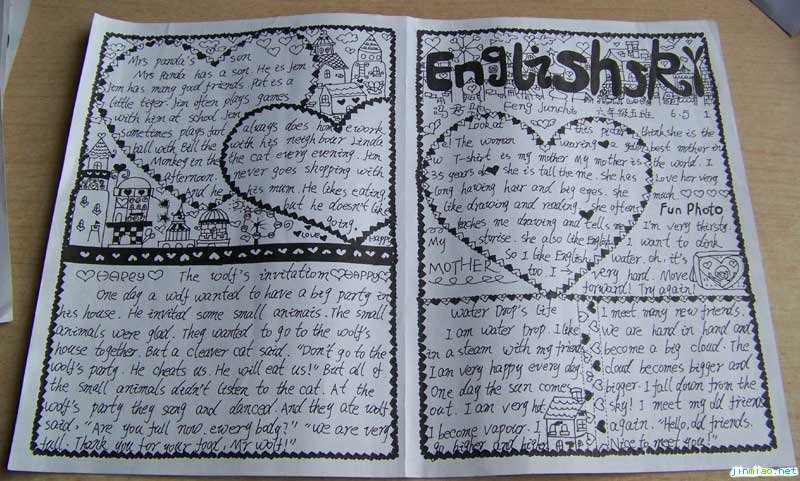 Mrs panda's son
Mrs Panda has a son. He is Jem
Jem has many good friends. Pat is a
little tiger. Jem often plays games
with him at school. Jem
sometimes plays foot
ball with Bill the
Monkey in the
afternoon.
And he
always does homework
with his neighbour Linda
the cat every evening. Jem
never goes shopping with
his mum. He likes eating,
but he doesn't like
going.
LOVE
Happy
HAPPY The wolf's invitation HAPPY
One day a wolf wanted to have a big party in
his house. He invited some small animals. The small
animals were glad. They wanted to go to the wolf's
house together. But a cleaver cat said. "Don't go to the
wolf's party. He cheats us. He will eat us!" But all of
the small animals didn't listen to the cat. At the
wolf's party they song and danced. And they ate wolf
said, "Are you full now. every body?" "We are very
full. Thank you for your food, Mr wolf!"
English
Feng Junchi 六年级五班 6.5 1
Look at this peter
The woman waering a
T-shirt is my mother My mother is
35 years old she is tall the me. she has
long having hair and big eges. she
like drawing and reading. she often
taches me drawing and tells me
storise. she also like English
So I like English
too I
My
MOTHER
think she is the
best mother in
the world. I
Love her very
much.
Fun Photo
I'm very thirsty.
I want to dink
water. oh, it's
very hard. Move
forward! Try again!
Water Drop's Life
I am water Drop. I lake
in a steam with my friend
I am very happy every day
One day the sun comes
out. I am very hot
I become vapour. I
go higher and higher
I meet many new friends.
we are hand in hand and
become a big cloud. The
cloud becomes bigger and
bigger. I fall down from the
sky! I meet my old friends
again. "Hello, old friends.
Nice to meet you!"
jinmiao.net